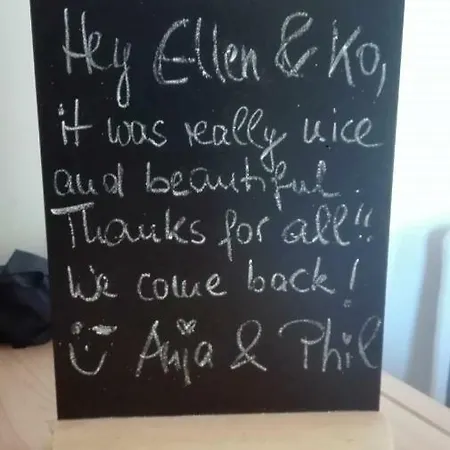 Hey Ellen & Ko,
it was really nice
and beautiful.
Thanks for all!!
We come back!
Anja & Phil